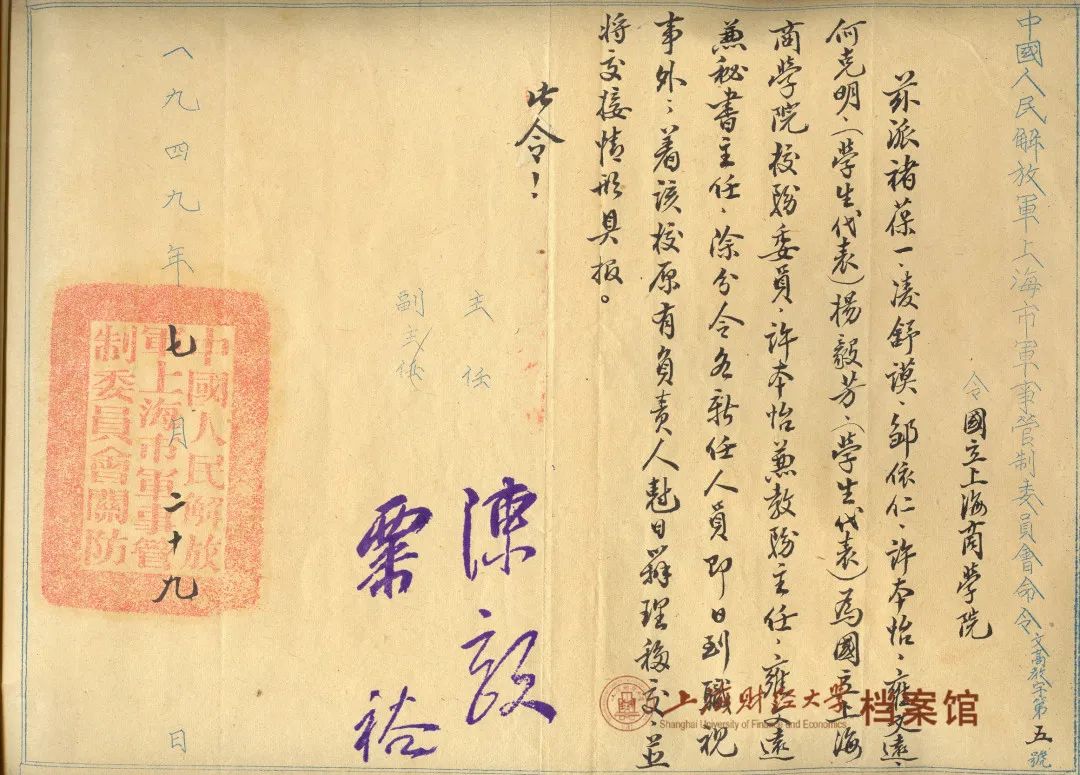 中國人民解放軍上海市軍事管制委員會命令 文高教字第五號
令 國立上海商學院
茲派褚葆一、凌舒謨、鄒依仁、許本怡、雍文遠、
何克明、(學生代表)楊毅芳、(學生代表)為國立上海
商學院校務委員,許本怡兼教務主任,雍文遠
兼秘書主任,除分令各新任人員即日到職視
事外,着該校原有負責人尅日辦理移交,並
將交接情形具报。
此令!
主任 陳毅
副主任 粟裕
一九四九年七月二十九日
中國人民解放
軍上海市軍事管
制委員會關防
上海财经大学 档案馆
Shanghai University of Finance and Economics